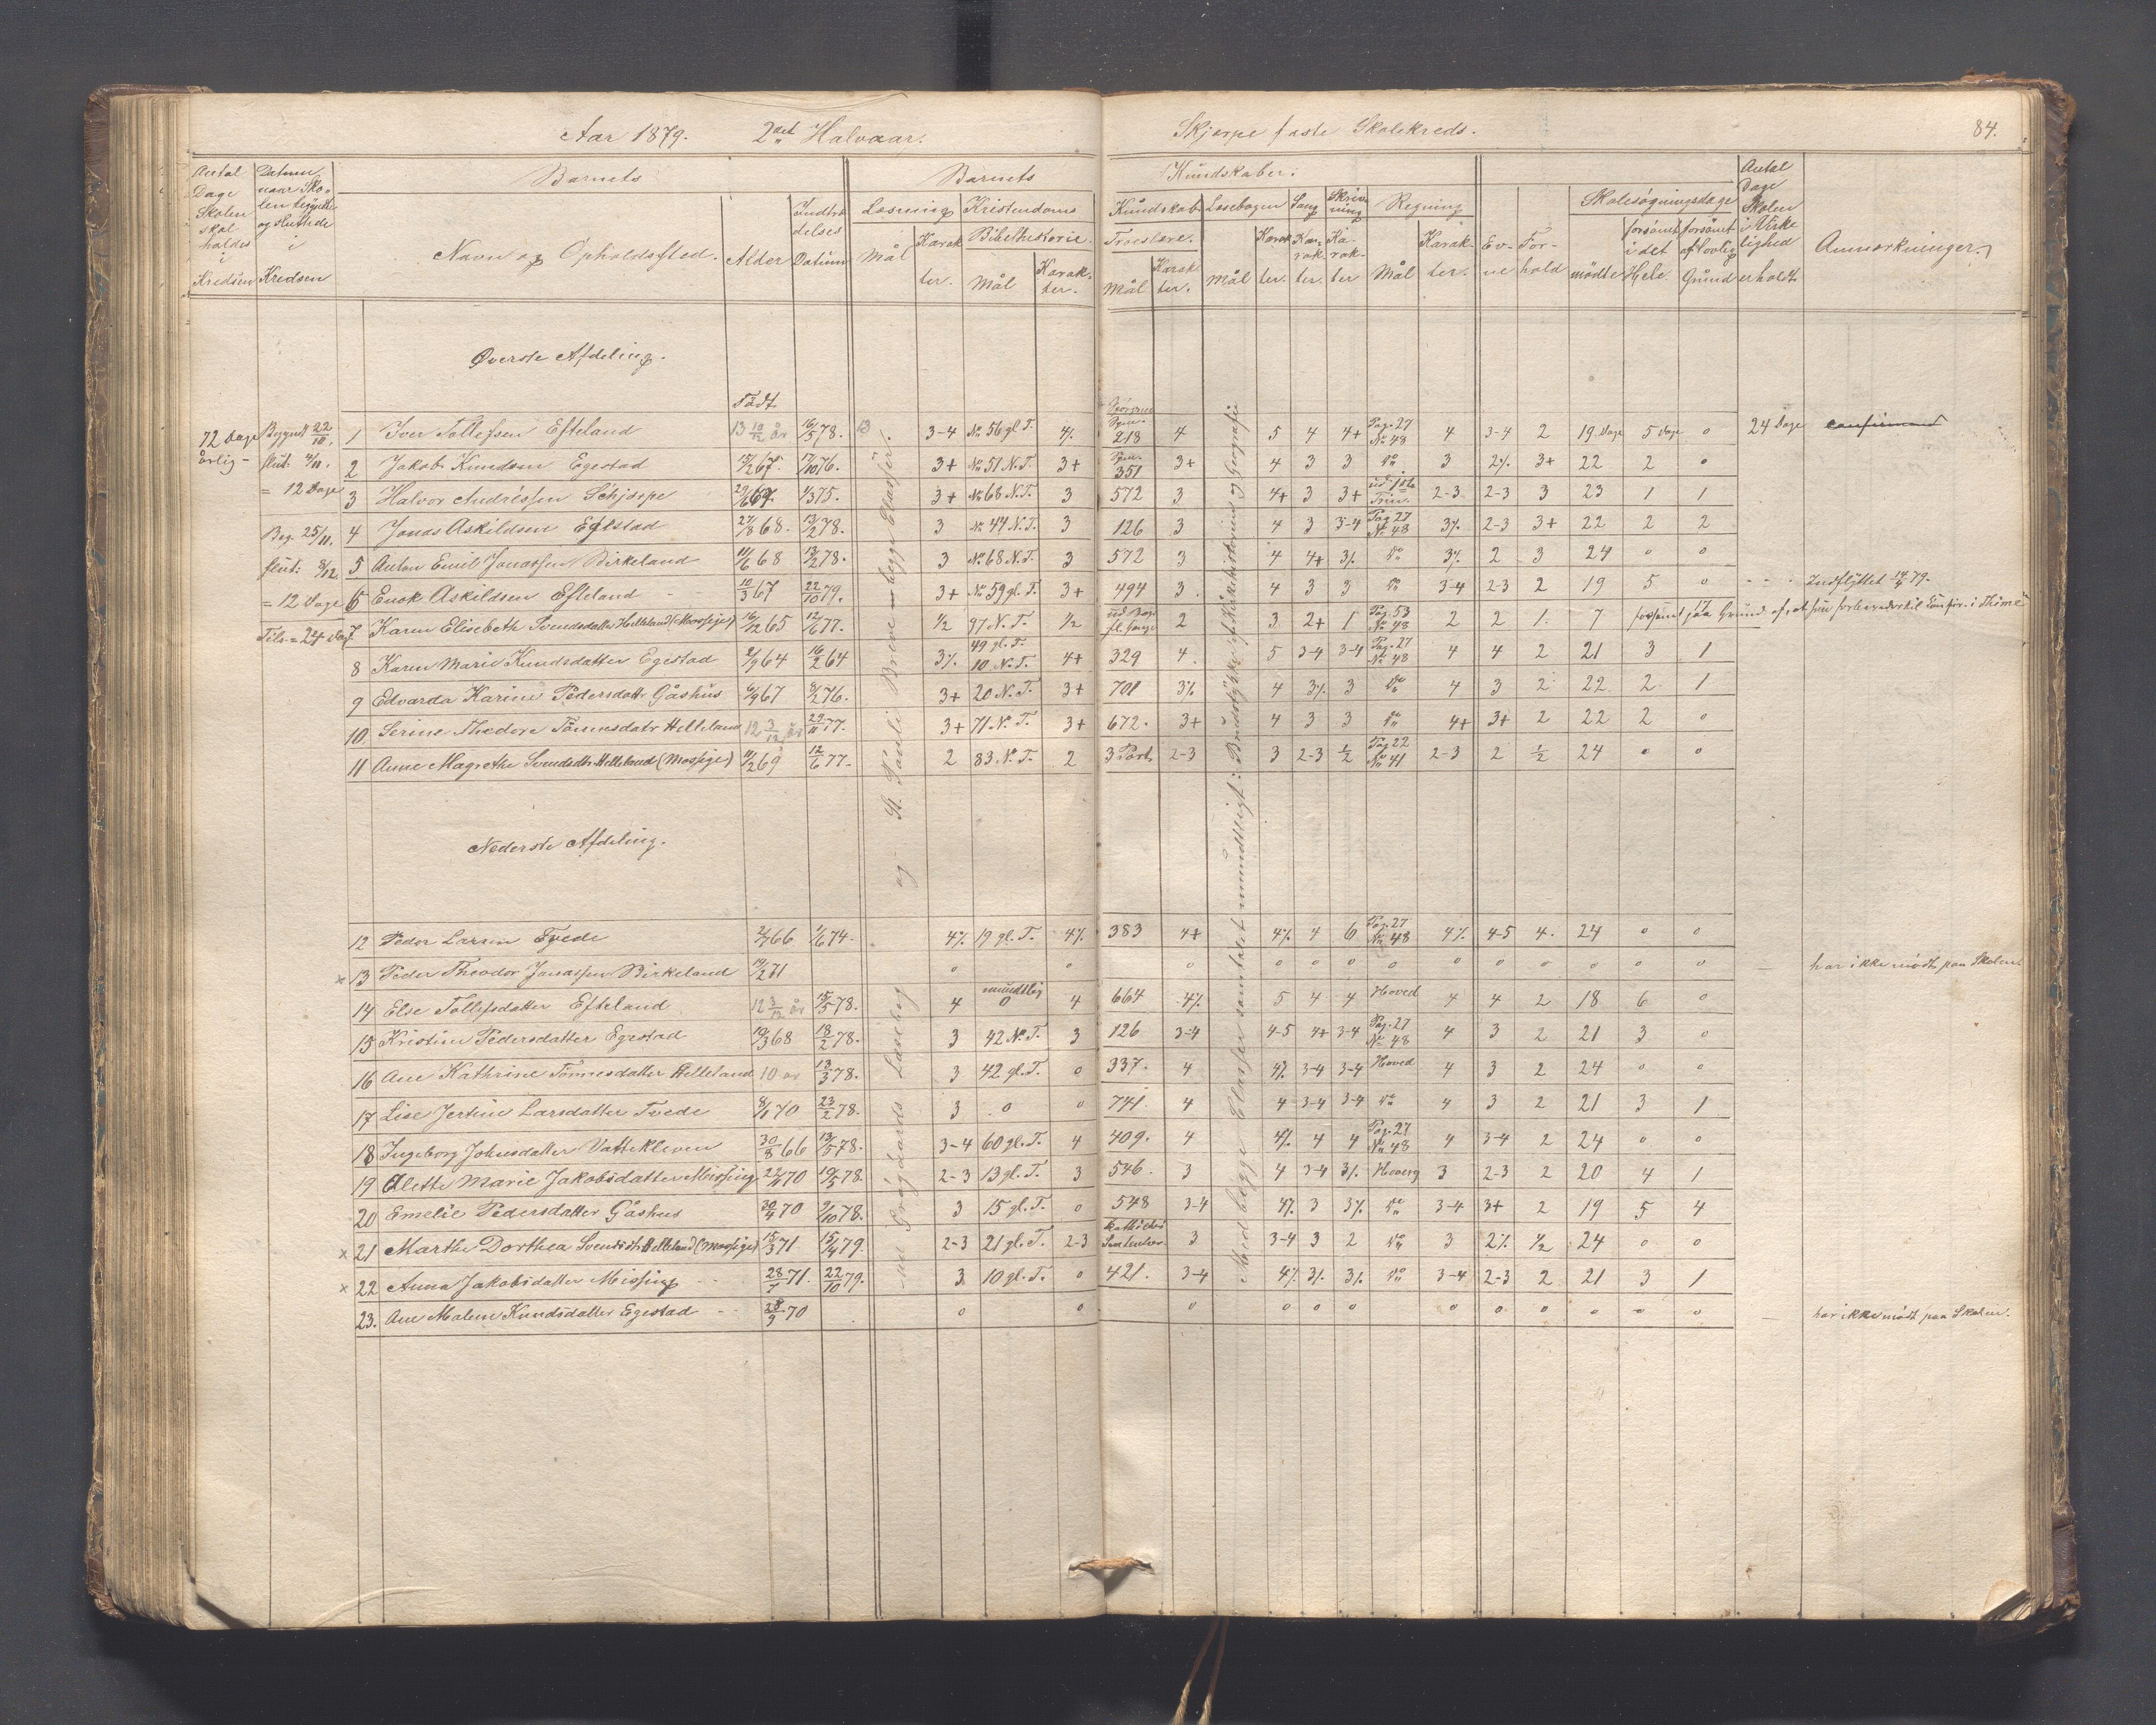 Aar 1879. 2det Halvaar.
Skjerpe faste Skolekreds. 84.
Antal Dage Skolen skal holdes i Kredsen
Datum naar Skolen begyndte og sluttede i Kredsen
Barnets
Navn og Opholdssted. Alder Indtrædelses Datum
Barnets
Læsning Mål Karakter.
Kristendoms Bibelhistorie. Mål Karakter.
Kundskaber:
Kundskab Troeslære. Mål Karakter.
Læsebogen Mål Karakter.
Sang Karakter.
Skrivning Karakter
Regning Mål Karakter.
Evne Forhold
Skolesøgningsdage
mødte forsømt i det Hele. forsømt af lovlig Grund
Antal Dage Skolen i Virkelighed erholdt
Anmærkninger.
Øverste Afdeling.
Født
72 Dage årlig
Begyndt 22/10.
slut: 4/11.
= 12 Dage
Beg. 25/11.
slut: 8/12.
= 12 Dage
Tils. = 24 Dag
1 Iver Tollefsen Efteland 13 10/12 år 16/5 78. 3-4 No 56 gl. T. 4% 218 4 5 4 4+ Pag. 27 No 48 4 3-4 2 19 Dage 5 Dage 0 24 Dage confirmand
2 Jakob Knudsen Egestad 15/2 67. 17/10 76. 3+ No 51 N. T. 3+ 351 3+ 4 3 3 do 3 2% 3+ 22 2 0
3 Halvor Andréssen Schjerpe 29/6 67. 1/3 75. 3+ No 68 N. T. 3 572 3 4+ 3 3+ 2-3 2-3 3 23 1 1
4 Jonas Askildsen Egestad 27/8 68. 13/2 78. 3 No 44 N. T. 3 126 3 4 3 3-4 Pag 27 No 48 3% 2-3 3+ 22 2 2
5 Anton Emil Jonassen Birkeland 11/6 68 13/2 78. 3 No 68 N. T. 3 572 3 4 4+ 3% do 3% 2 3 24 0 0
6 Enok Askildsen Efteland 10/3 67 22/10 79. 3+ No 59 gl. T. 3+ 494 3. 4 3 3 do 3-4 2-3 2 19 5 0 Indflyttet 14/4 79.
7. Karen Elisebeth Svendsdatter Helleland (Mossige) 16/12 65 12/6 77. 1/2 97 N. T. 1/2 2 3 2+ 1 Pag. 53 No 48 2 2 1. 7 forsømt 17 paa Grund af, at
8 Karen Marie Knudsdatter Egestad 2/9 64 16/2 64 3% 49 gl. T. 10 N. T. 4+ 329 4. 5 3-4 3-4 Pag. 27 No 48 4 4 2 21 3 1
9 Edvarda Karine Pedersdatt. Gåshus 6/9 67 8/2 76. 3+ 20 N. T. 3+ 701 3% 4 3% 3 do 4 3 2 22 2 1
10. Serine Theodore Tønnesdatr Helleland 12 3/12 år 29/11 77. 3+ 71 N. T. 3+ 672. 3+ 4 3 3 do 4+ 3+ 2 22 2 0
11 Anne Magrethe Svendsdtr Helleland (Mossige) 11/2 69 12/6 77. 2 83 N. T. 2 3 Part. 2-3 3 2-3 1/2 Pag 22 No 41 2-3 2 1/2 24 0 0
Nederste Afdeling.
12 Peder Larsen Tvede 2/7 66 1/6 74. 4% 19 gl. T. 4% 383 4+ 4% 4 6 Pag. 27 No 48 4% 4-5 4. 24 0 0
x 13 Peder Theodor Jonassen Birkeland 19/2 71 0 0 0 0 0 0 0 0 0 0 0 0 0 har ikke mødt paa Skolen
14 Else Tollefsdatter Efteland 12 3/12 år 15/5 78. 4 mundtlig 0 4 664 4% 5 4 4 Hoved 4 4 2 18 6 0
15 Kristine Pedersdatter Egestad 19/3 68 18/2 78. 3 42 N. T. 3 126 3-4 4-5 4+ 3-4 Pag. 27 No 48 4 3 2 21 3 0
16 Ane Kathrine Tønnesdatter Helleland 10 år 13/3 78. 3 42 gl. T. 0 337. 4 4% 3-4 3-4 Hoved 4 3 2 24 0 0
17 Lise Jertine Larsdatter Tvede 8/11 70 23/2 78. 3 0 0 741 4 4 3-4 3-4 do 4 3 2 21 3 1
18 Ingeborg Johnsdatter Vattekleven 30/8 66 13/5 78. 3-4 60 gl. T. 4 409. 4 4% 4 4 Pag. 27 No 48 4 3-4 2 24 0 0
19 Alette Marie Jakobsdatter Missing 22/11 70 19/5 78. 2-3 13 gl. T. 3 546. 3 4 3-4 3% Hoverg 3 2-3 2 20 4 1
20 Emelie Pedersdatter Gåshus 30/4 70 9/10 78. 3 15 gl. T. 0 548 3-4 4% 3 3% do 3-4 3+ 2 19 5 4
x 21 Marthe Dorthea Svendsdtr Helleland (Mossige) 15/3 71. 15/4 79. 2-3 21 gl. T. 2-3 3 3-4 3 2 do 3 2% 1/2 24 0 0
x 22 Anna Jakobsdatter Missing 28/7 71. 22/10 79. 3 10 gl. T. 0 421. 3-4 4% 3% 3% do 3-4 2-3 2 21 3 1
23. Ane Malene Knudsdatter Egestad 28/9 70 0 0 0 0 0 0 0 0 0 0 0 0 0 har ikke mødt paa Skolen.
Læsebog og St. Pauli Breve = begge Classer.
Med begge Classer samtalet mundtligt: Brudstykker af Kirkehistorien og Geografie